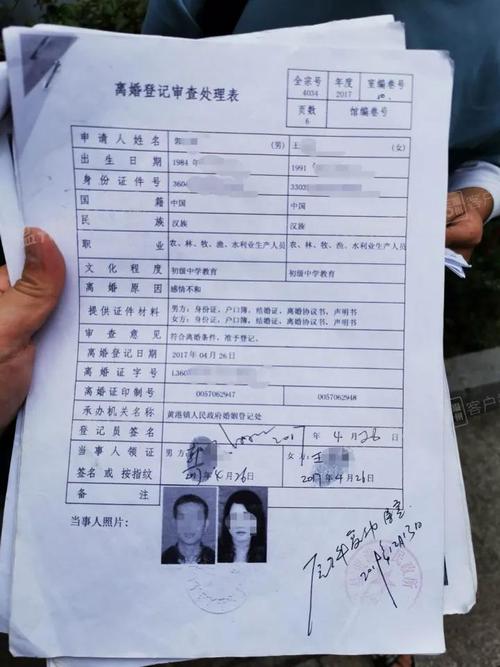 离婚登记审查处理表
全宗号 年度 室编卷号
4034 2017
页数 馆编卷号
6
申请人姓名 郭 (男) 王 (女)
出生日期 1984年 1991
身份证件号 3604 3303
国籍 中国 中国
民族 汉族 汉族
职业 农、林、牧、渔、水利业生产人员 农、林、牧、渔、水利业生产人员
文化程度 初级中学教育 初级中学教育
离婚原因 感情不和
提供证件材料 男方：身份证，户口簿，结婚证，离婚协议书，声明书
女方：身份证，户口簿，结婚证，离婚协议书，声明书
审查意见 符合离婚条件，准予登记。
离婚登记日期 2017年04月26日
离婚证字号 L360
离婚证印制号 0057062947 0057062948
承办机关名称 黄港镇人民政府婚姻登记处
登记员签名 2017年4月26日
当事人领证 男方： 女方：王
签名或按指纹 2017年4月26日 2017年4月26日
备注
当事人照片：